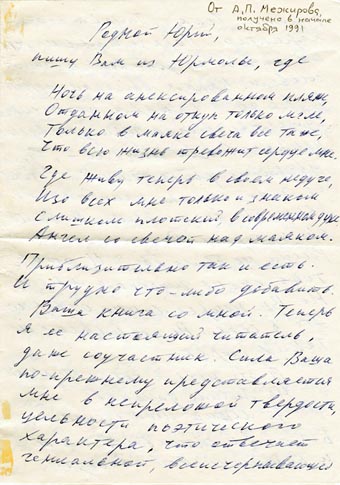 От А.П. Межирова,
получено в начале
октября 1991
Родной Юрий,
пишу Вам из Юрмолы, где
Ночь на анексированном пляже,
Отданном на откуп только мгле,
Только в маяке свеча все та же,
Что всю жизнь тревожит сердце мне.
Где живу теперь в своем недуге,
Изо всех мне только и знаком
Слишком плотский, в современном духе
Ангел со свечой над маяком.
Приблизительно так и есть.
И трудно что-либо добавить.
Ваша книга со мной. Теперь
я ее настоящий читатель,
даже соучастник. Сила Ваша
по-прежнему представляется
мне в непреложной твердости,
цельности поэтического
характера, что отвечает
гениальной, всеисчерпывающей